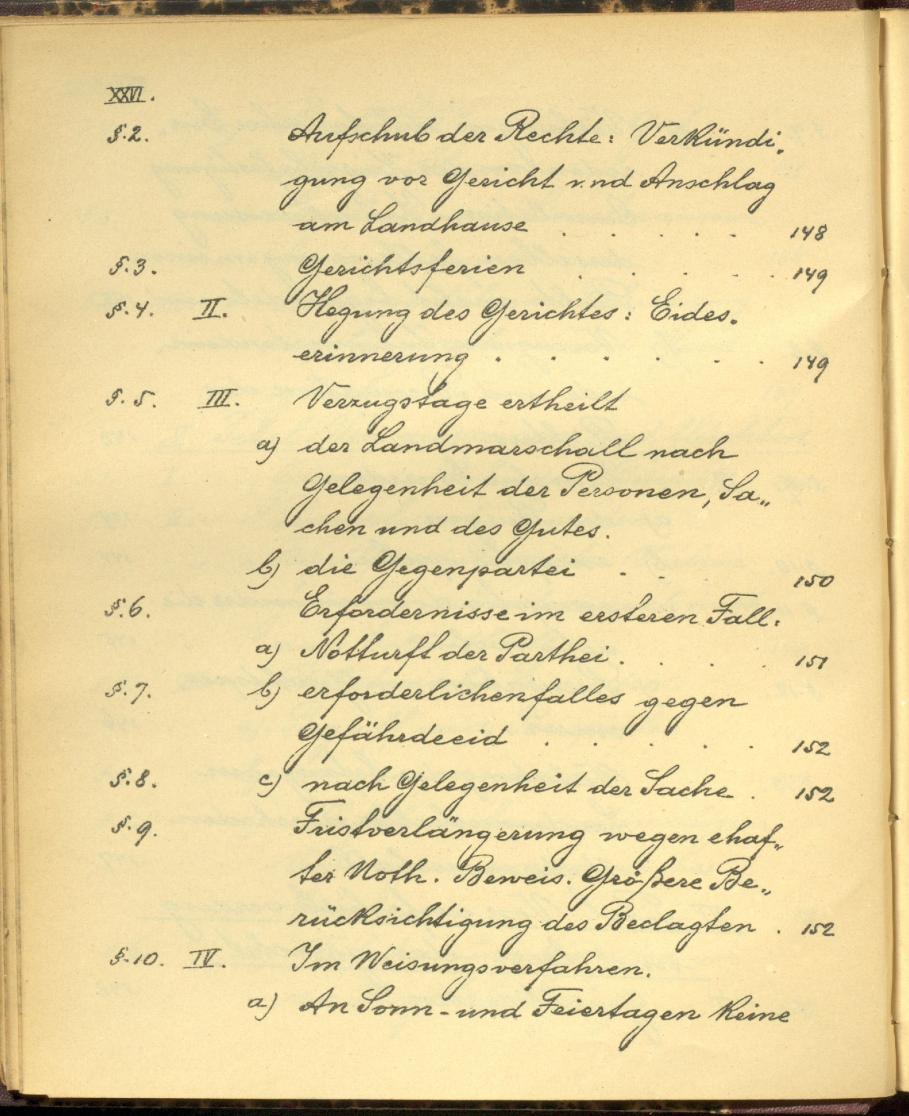 XXVI.
§.2. Aufschub der Rechte: Verkündi„
gung vor Gericht und Anschlag
am Landhause . . . . . 148
§.3. Gerichtsferien . . . . . 149
§.4. II. Hegung des Gerichtes: Eides„
erinnerung . . . . . . . 149
§.5. III. Verzugstage ertheilt
a) der Landmarschall nach
Gelegenheit der Personen, Sa„
chen und des Gutes.
b) die Gegenpartei . . . 150
§.6. Erfordernisse im ersteren Fall:
a) Notturft der Parthei . . . . 151
§.7. b) erforderlichenfalles gegen
Gefährdeeid . . . . . 152
§.8. c) nach Gelegenheit der Sache . 152
§.9. Fristverlängerung wegen ehaf„
ter Noth. Beweis. Größere Be„
rücksichtigung des Beclagten . 152
§.10. IV. Im Weisungsverfahren.
a) An Sonn- und Feiertagen keine